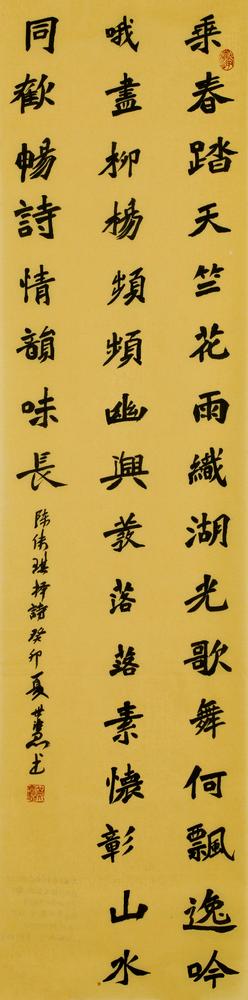 乘春踏天竺花雨織湖光歌舞何飄逸吟
哦盡柳楊頻頻幽興發落落素懷彰山水
同歡暢詩情韻味長
詩癸卯夏世